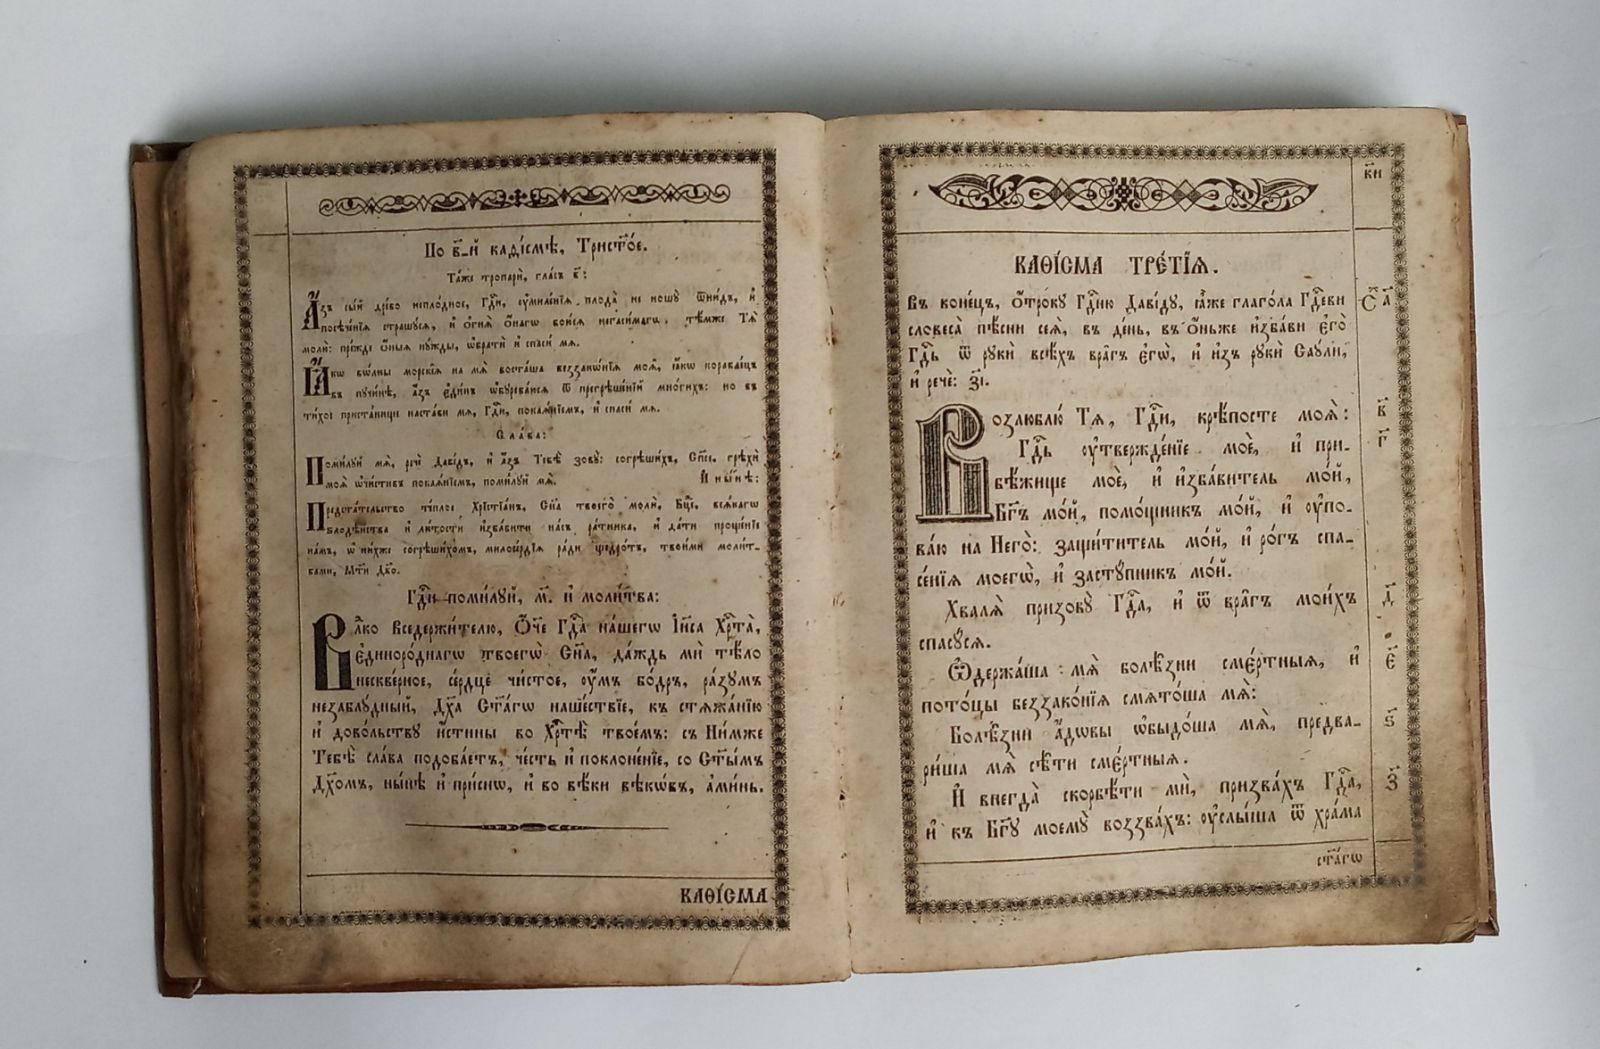 По в҃-й каѳі́смѣ, Трист҃о́е.
Та́же тропарѝ, гла́съ в҃:
А҆́зъ є҆́смь дре́во непло́дное, Гдⷭ҇и, ᲂу҆миле́нїѧ плода̀ не ношꙋ̀ ѿню́дъ, и҆
посѣче́нїѧ страшꙋ́сѧ, и҆ ѻ҆гнѧ̀ ѻ҆́нагѡ бою́сѧ негаси́магѡ. тѣ́мже Тѧ̀
молю̀: пре́жде ѻ҆́ныѧ нꙋ́жды, ѡ҆братѝ и҆ спасѝ мѧ.
Ꙗ҆́кѡ вѡ́лны морскі́ѧ на мѧ̀ воста́ша беззакѡ́нїѧ моѧ̑, ꙗ҆́кѡ кора́блецъ
въ пꙋчи́нѣ, а҆́зъ є҆ди́нъ ѡ҆бꙋрева́юсѧ ѿ прегрѣше́нїй мно́гихъ: но въ
ти́хое приста́нище наста́ви мѧ, Гдⷭ҇и, покаѧ́нїемъ, и҆ спасѝ мѧ.
Сла́ва:
Поми́лꙋй мѧ̀, речѐ Даві́дъ, и҆ а҆́зъ Тебѣ̀ зовꙋ̀: согрѣши́хъ, Сп҃се, грѣхѝ
моѧ̑ ѡ҆чи́стивъ покаѧ́нїемъ, поми́лꙋй мѧ̀. И҆ ны́нѣ:
Предста́тельство те́плое Хрїстїа́нъ, Сн҃а твоего̀ молѝ, Бц҃е, всѧ́кагѡ
ѕлодѣ́йства и҆ лю́тости и҆зба́вити на́съ ра́тника, и҆ да́ти проще́нїе
на́мъ, ѡ҆ ни́хже согрѣши́хомъ, милосе́рдїѧ ра́ди щедро́тъ, твои́ми моли́т-
вами, Мт҃и Дв҃о.
Гдⷭ҇и поми́лꙋй, м҃. и҆ моли́тва:
Влⷣко Вседержи́телю, Ѻ҆́ч҃е Гдⷭ҇а на́шегѡ І҆и҃са Хрⷭ҇та̀,
є҆диноро́днагѡ твоегѡ̀ Сн҃а, да́ждь мѝ тѣ́ло
нескве́рное, се́рдце чи́стое, ᲂу҆́мъ бо́дръ, ра́зꙋмъ
незаблꙋ́дный, Дх҃а Ст҃а́гѡ наше́ствїе, къ стѧжа́нїю
и҆ дово́льствꙋ и҆́стины во Хрⷭ҇тѣ̀ твое́мъ: съ Ни́мже
Тебѣ̀ сла́ва подоба́етъ, че́сть и҆ поклоне́нїе, со Ст҃ы́мъ
Дх҃омъ, ны́нѣ и҆ при́снѡ, и҆ во вѣ́ки вѣкѡ́въ, а҆ми́нь.
КАѲІ́СМА
к҃и
КАѲІ́СМА ТРЕ́ТЇѦ.
Въ коне́цъ, ѻ҆́трокꙋ Гдⷭ҇ню Даві́дꙋ, ꙗ҆̀же глаго́ла Гдⷭ҇еви
словеса̀ пѣ́сни сеѧ̀, въ де́нь, въ ѻ҆́ньже и҆зба́ви є҆го̀
Гдⷭ҇ь ѿ рꙋкѝ всѣ́хъ вра̑гъ є҆гѡ̀, и҆ и҆зъ рꙋкѝ Саꙋ́ли,
и҆ речѐ: з҃і.
а҃
Возлюблю́ Тѧ, Гдⷭ҇и, крѣ́посте моѧ̀:
в҃
Гдⷭ҇ь ᲂу҆твержде́нїе моѐ, и҆ при-
г҃
бѣ́жище моѐ, и҆ и҆зба́витель мо́й,
Бг҃ъ мо́й, помо́щникъ мо́й, и҆ ᲂу҆по-
ва́ю на Него̀: защи́титель мо́й, и҆ ро́гъ спа-
се́нїѧ моегѡ̀, и҆ застꙋ́пникъ мо́й.
Хвалѧ̀ призовꙋ̀ Гдⷭ҇а, и҆ ѿ вра̑гъ мои́хъ
д҃
спасꙋ́сѧ.
Ѡ҆держа́ша мѧ̀ болѣ̑зни сме́ртныѧ, и҆
є҃
пото́цы беззако́нїѧ смѧто́ша мѧ̀:
Болѣ̑зни а҆́довы ѡ҆быдо́ша мѧ̀, предва-
ѕ҃
ри́ша мѧ̀ сѣ́ти сме́ртныѧ.
И҆ внегда̀ скорбѣ́ти мѝ, призва́хъ Гдⷭ҇а,
з҃
и҆ къ Бг҃ꙋ моемꙋ̀ воззва́хъ: ᲂу҆слы́ша ѿ хра́ма
ст҃а́гѡ